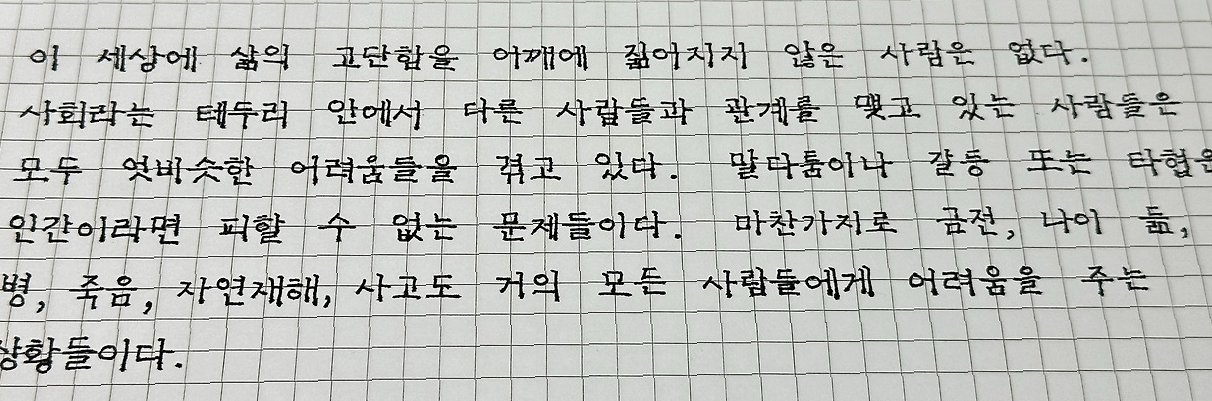 이 세상에 삶의 고단함을 어깨에 짊어지지 않은 사람은 없다.
사회라는 테두리 안에서 다른 사람들과 관계를 맺고 있는 사람들은
모두 엇비슷한 어려움들을 겪고 있다. 말다툼이나 갈등 또는 타협은
인간이라면 피할 수 없는 문제들이다. 마찬가지로 금전, 나이 듦,
병, 죽음, 자연재해, 사고도 거의 모든 사람들에게 어려움을 주는
상황들이다.